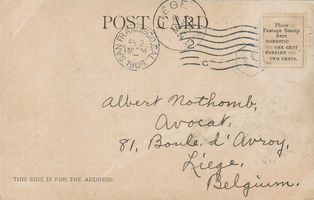 LIÈGE
POST CARD
Place
Postage Stamp
here
DOMESTIC
ONE CENT
FOREIGN
TWO CENTS.
SAN FRANCISCO, CAL.
1905
2
Albert Nothomb,
Avocat,
81, Boule. d'Avroy,
Liege,
Belgium.
THIS SIDE IS FOR THE ADDRESS